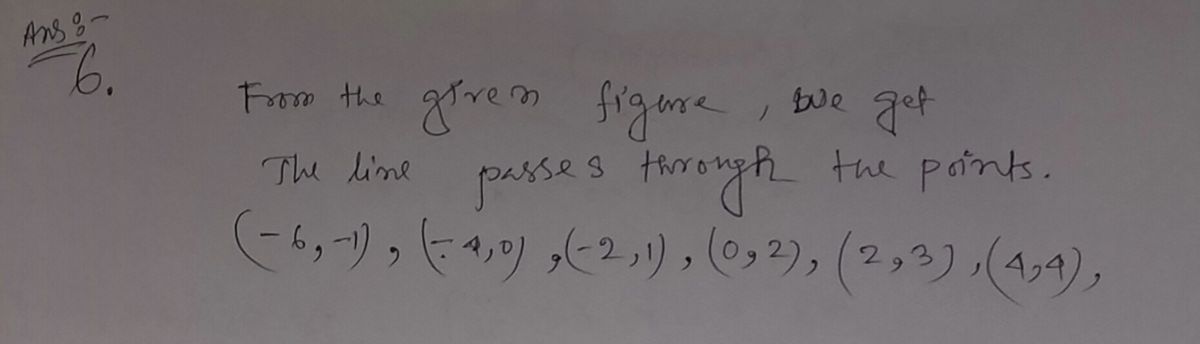 Ans :-
6.
From the given figure, we get
The line passes through the points.
(-6,-1), (-4,0), (-2,1), (0,2), (2,3), (4,4),